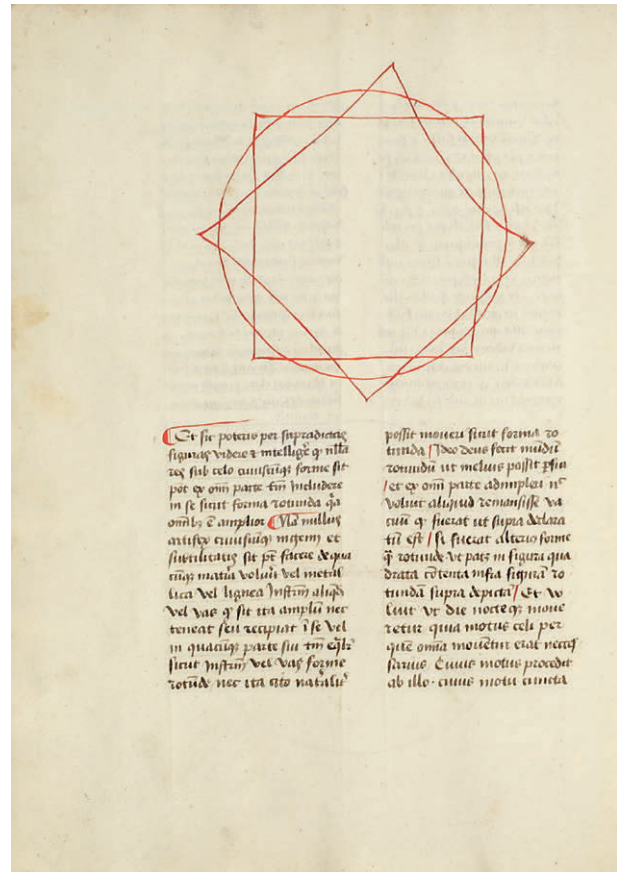 Et sic poteris per supradictas
figuras videre & intelligē q nll̄a
res sub celo cuiuscūq forme sit
pōt ex om̄i parte tm̄ includere
in se sicut forma rotunda q̄a
om̄ibȝ ē amplior Nā nullus
artifex cuiuscūq ingenij et
subtilitatis sit pt̄ facere de qua
cūq materia voluīt vel metal
lica vel lignea Instrm̄ aliqd̄
vel vas q sit ita amplū nec
teneat seu recipiat ī se vel
in quacūq parte sui tm̄
sicut Instrm̄ vel vas forme
rotūde nec ita cito natalit᷑
possit moveri sicut forma ro
tunda Ideo deus fecit mūdū
rotundū ut melius possit
et ex om̄i parte adimpleri
voluit aliquid remansisse va
cuū q fuerat ut supra declara
tū est Si fuerat alterius forme
q̄ rotunde vt patȝ in figura qua
drata cōtenta infra figurā ro
tundā supra depicta Et vo
luit vt die nocteqȝ move
retur quia motus celi per
quē omnia moventur erat necess
sarius Cuius motus procedit
ab illo cuius motu cuncta